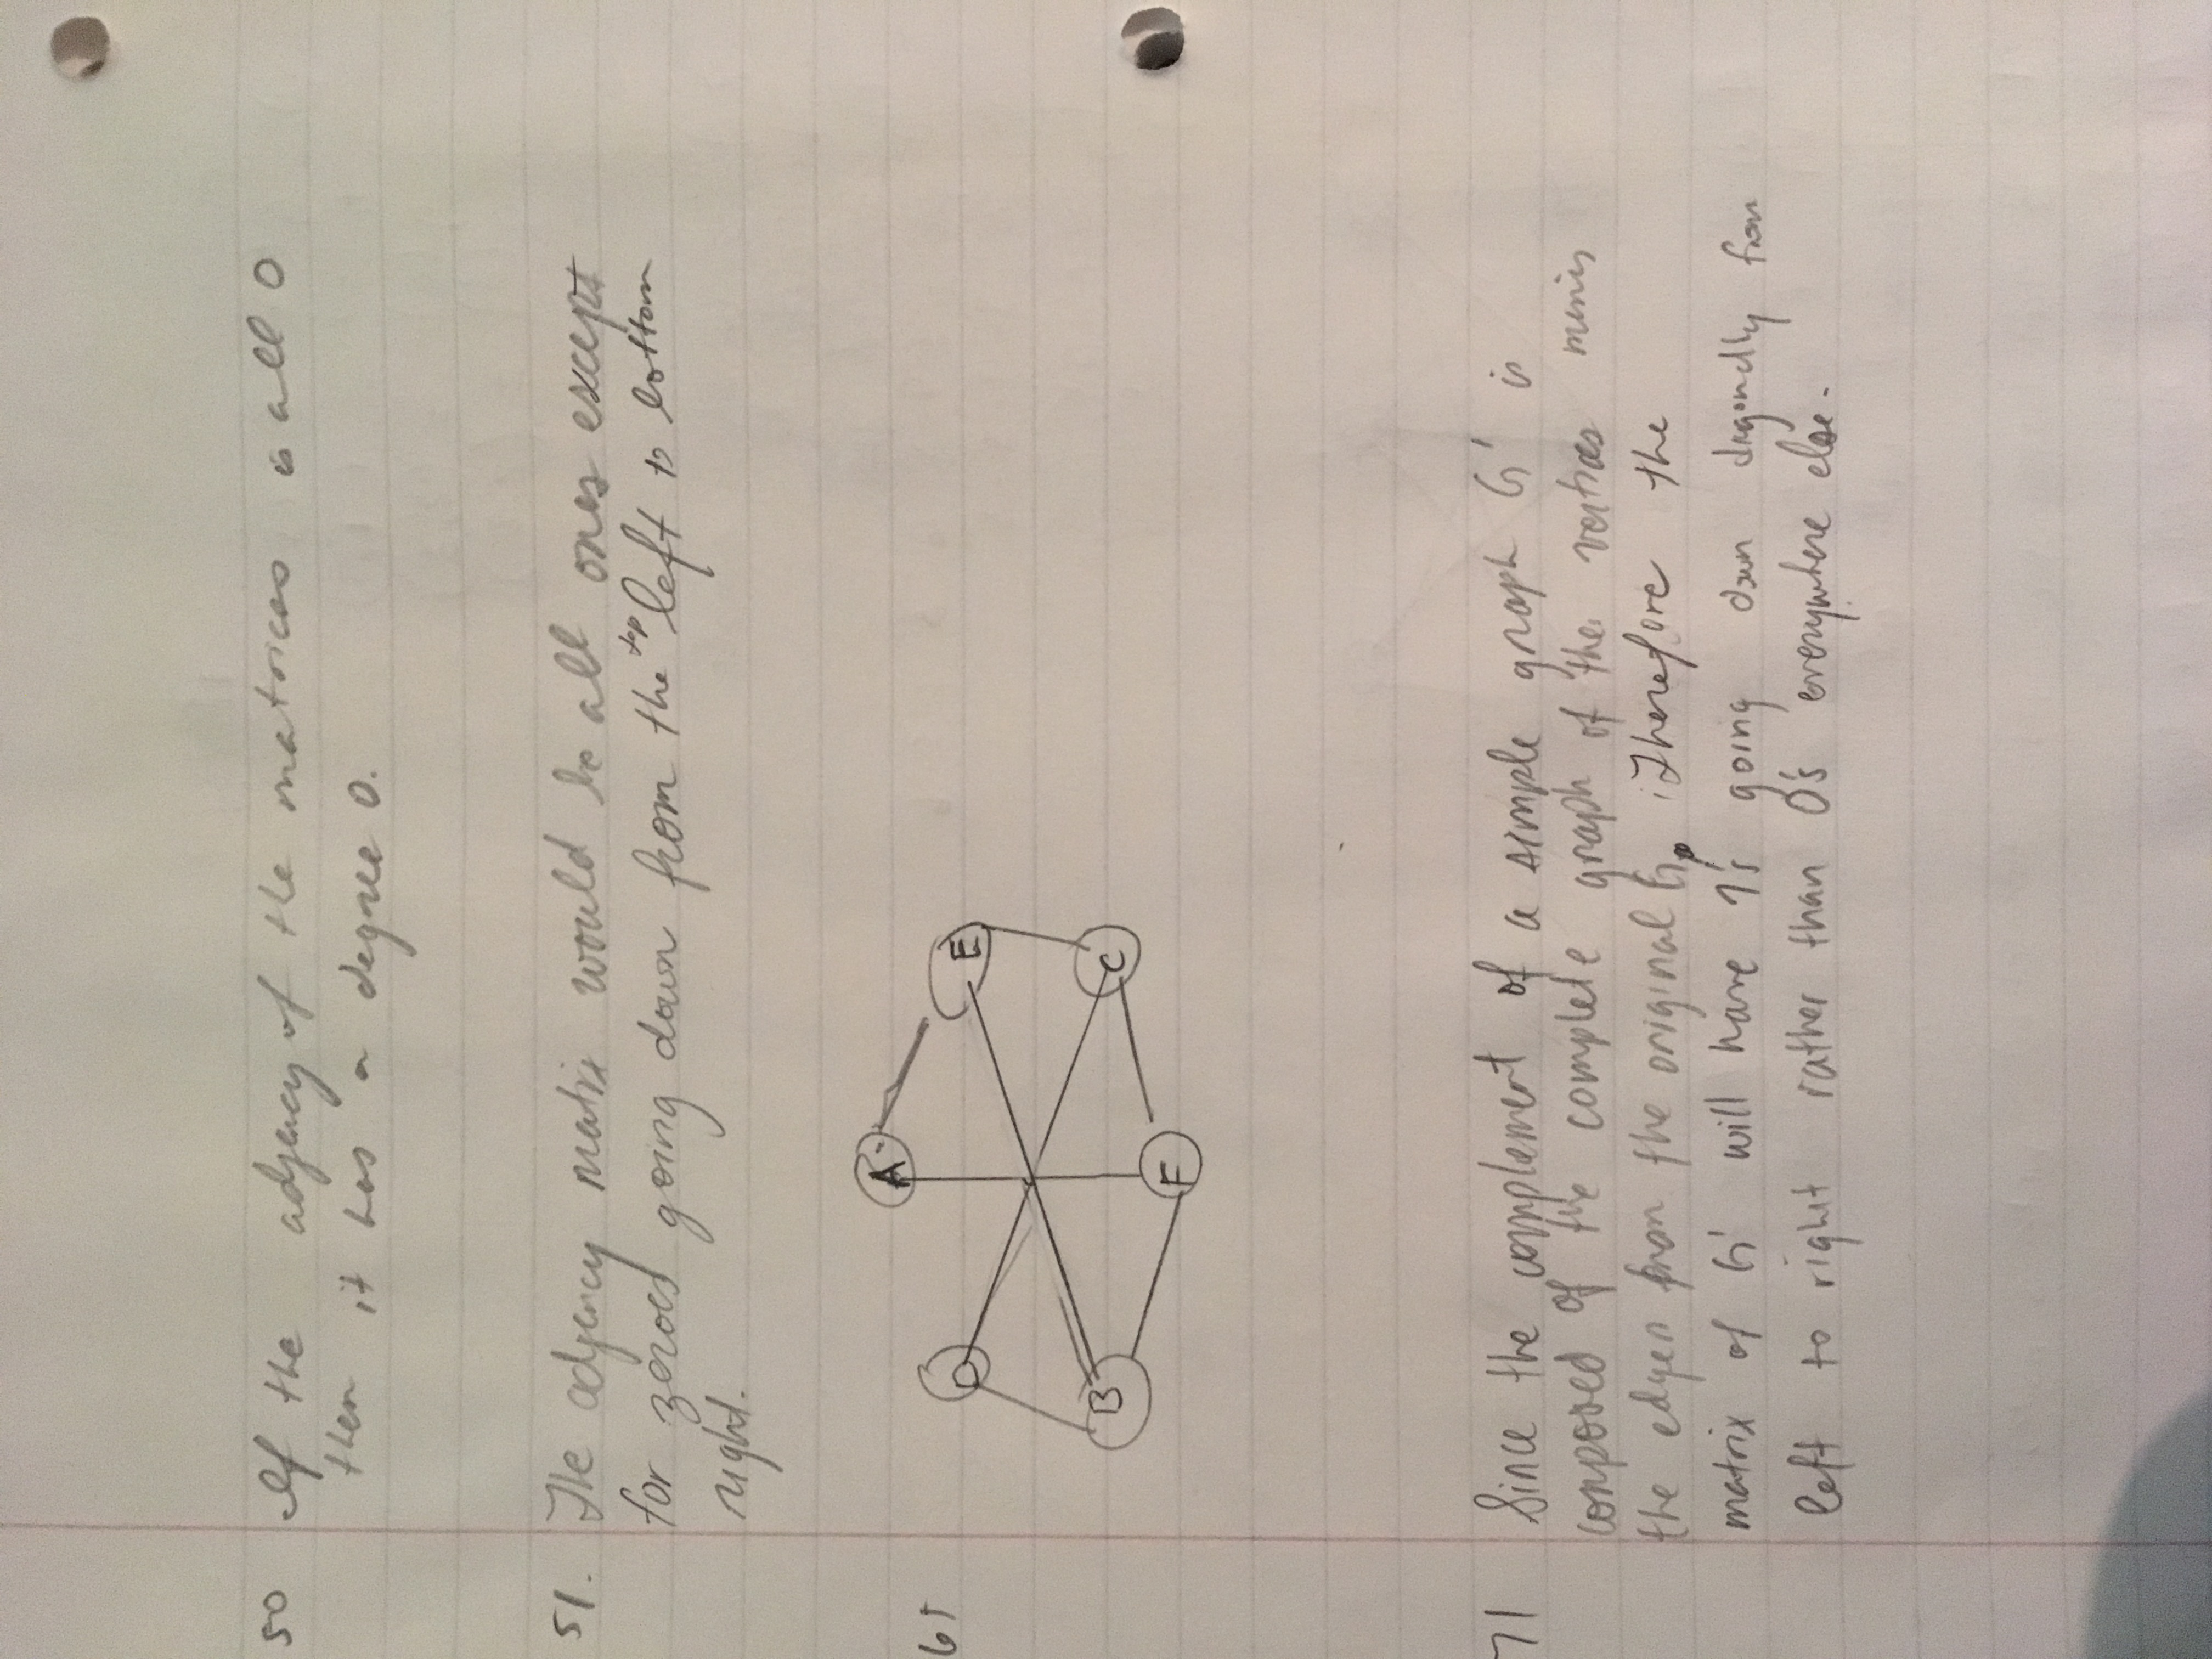 50 If the adjency of the matrices is all 0
then it has a degree 0.
51. The adjency matix would be all ones except
for zeroes going down from the top left to bottom
right.
61
A
E
D
B
C
F
71 Since the complement of a simple graph G' is
composed of the complete graph of the vertices minus
the edges from the original G. Therefore the
matrix of G' will have 1's going down diagonally from
left to right rather than 0's everywhere else.